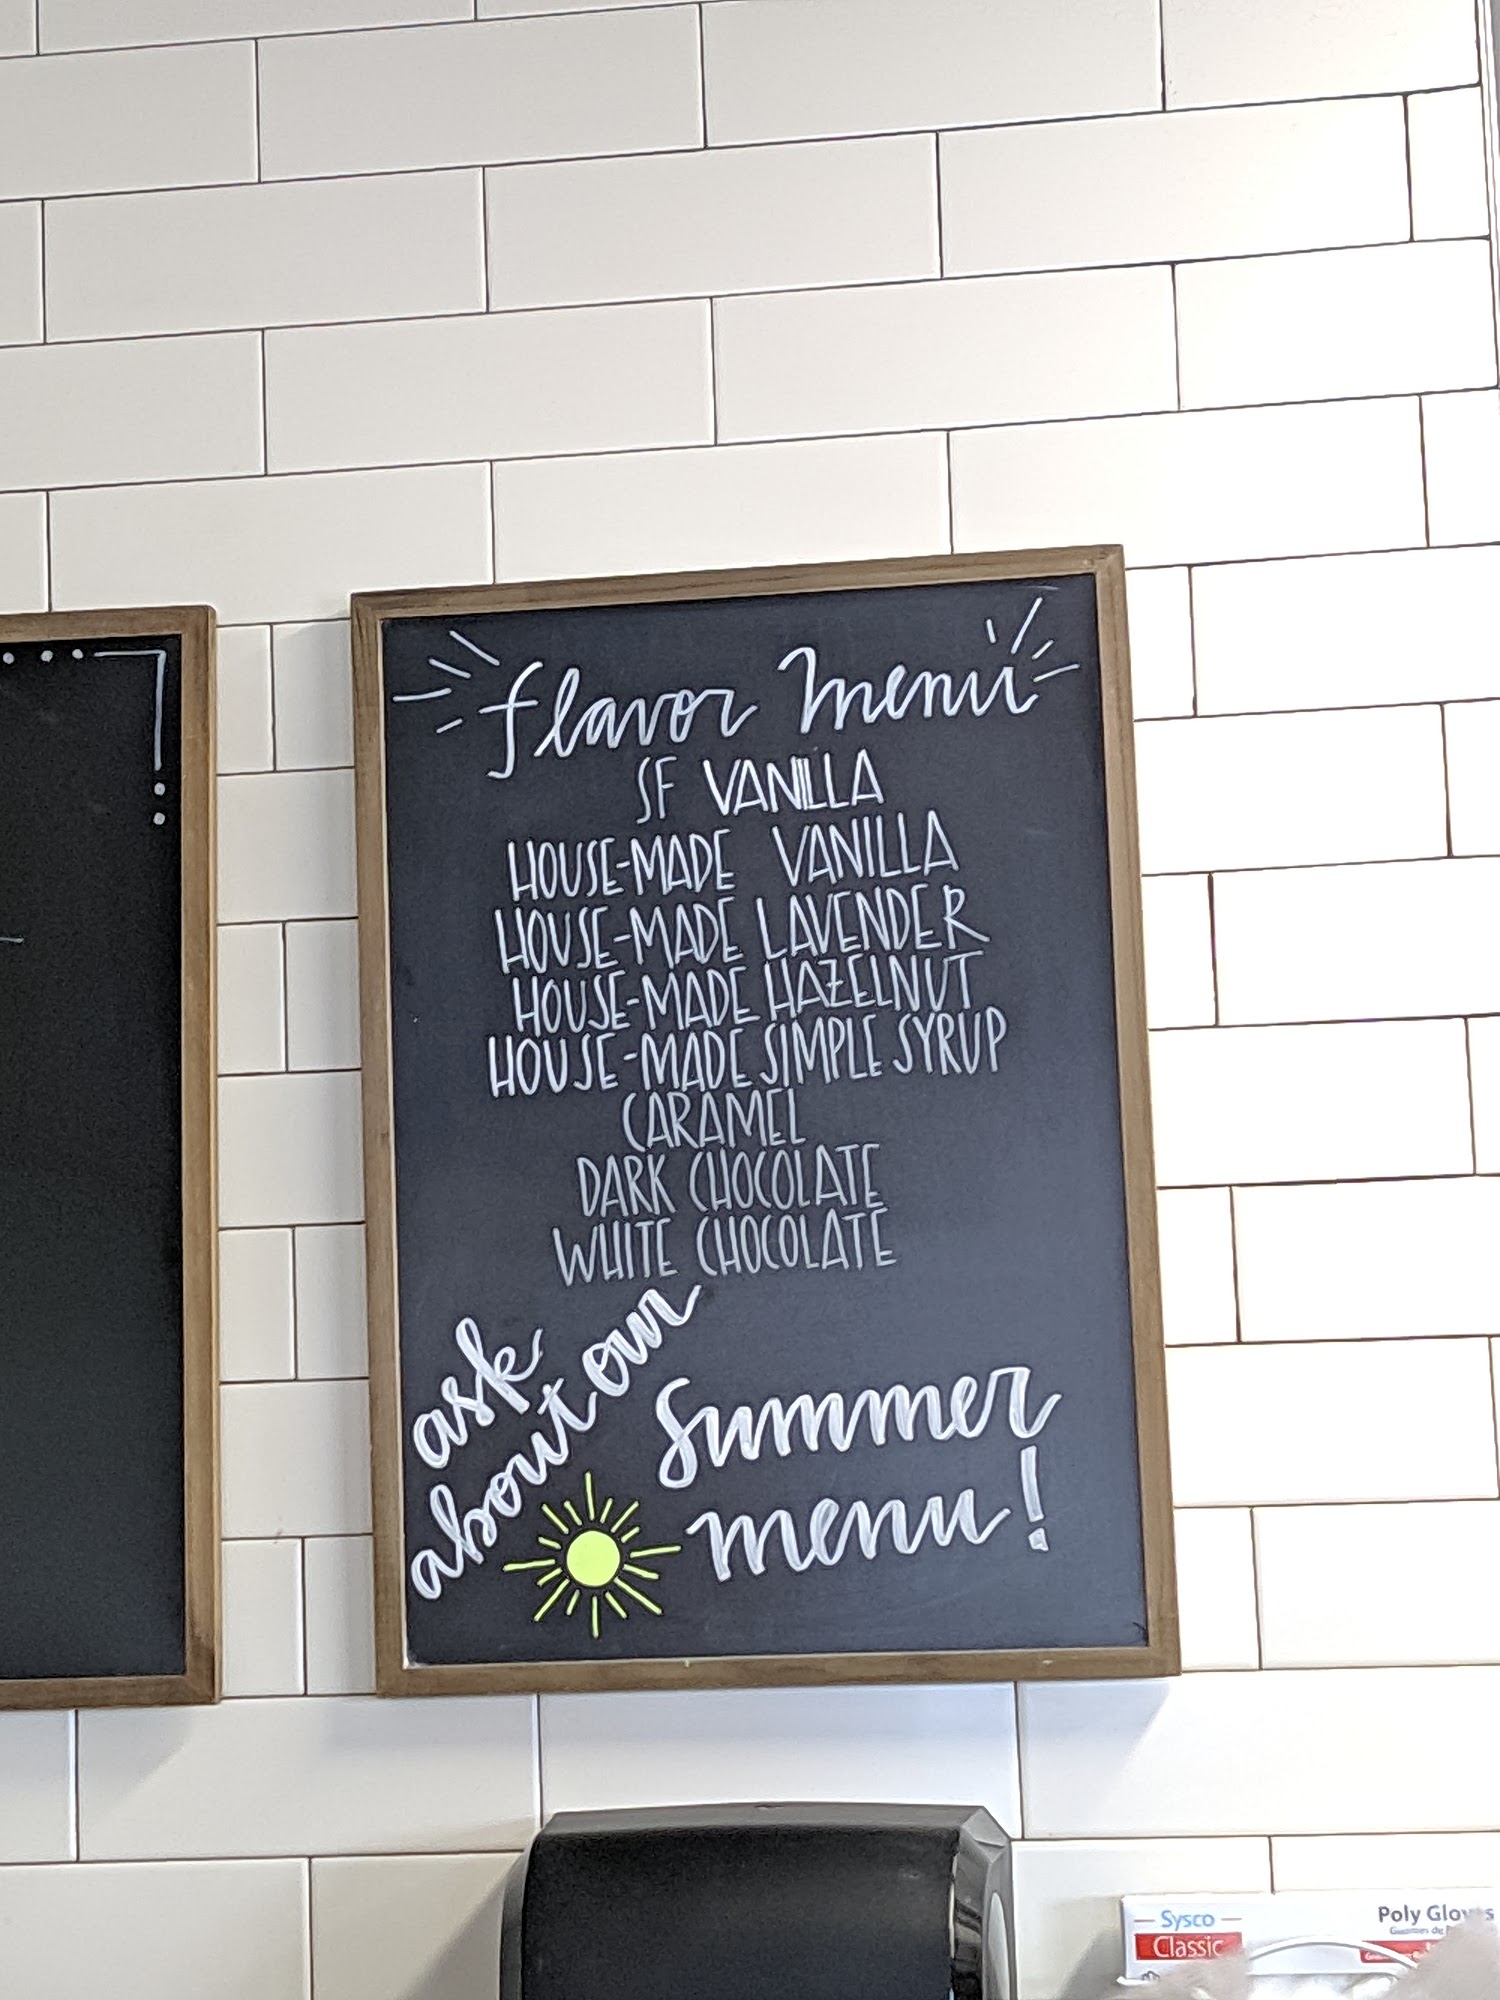 flavor menu
SF VANILLA
HOUSE-MADE VANILLA
HOUSE-MADE LAVENDER
HOUSE-MADE HAZELNUT
HOUSE-MADE SIMPLE SYRUP
CARAMEL
DARK CHOCOLATE
WHITE CHOCOLATE
ask
about our
Summer
menu!
Sysco
Classic
Poly Gloves